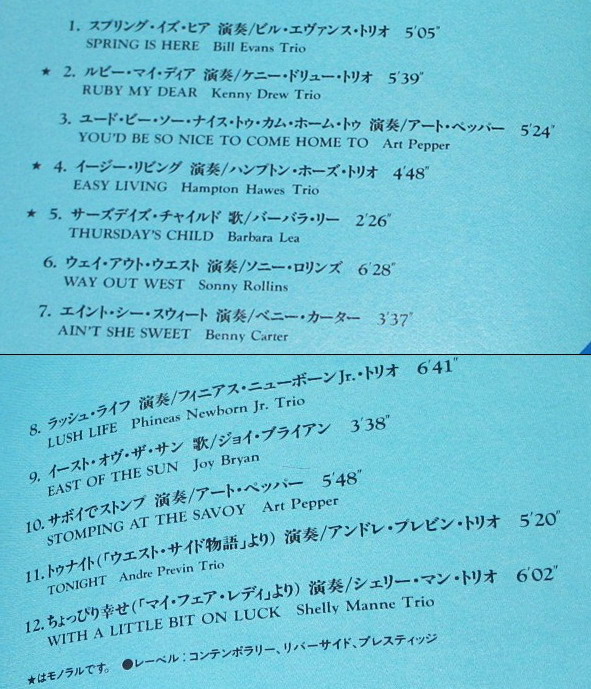 1. スプリング・イズ・ヒア 演奏/ビル・エヴァンス・トリオ 5'05"
SPRING IS HERE Bill Evans Trio
★ 2. ルビー・マイ・ディア 演奏/ケニー・ドリュー・トリオ 5'39"
RUBY MY DEAR Kenny Drew Trio
3. ユード・ビー・ソー・ナイス・トゥ・カム・ホーム・トゥ 演奏/アート・ペッパー 5'24"
YOU'D BE SO NICE TO COME HOME TO Art Pepper
★ 4. イージー・リビング 演奏/ハンプトン・ホーズ・トリオ 4'48"
EASY LIVING Hampton Hawes Trio
★ 5. サーズデイズ・チャイルド 歌/バーバラ・リー 2'26"
THURSDAY'S CHILD Barbara Lea
6. ウェイ・アウト・ウエスト 演奏/ソニー・ロリンズ 6'28"
WAY OUT WEST Sonny Rollins
7. エイント・シー・スウィート 演奏/ベニー・カーター 3'37"
AIN'T SHE SWEET Benny Carter
8. ラッシュ・ライフ 演奏/フィニアス・ニューボーンJr.・トリオ 6'41"
LUSH LIFE Phineas Newborn Jr. Trio
9. イースト・オヴ・ザ・サン 歌/ジョイ・ブライアン 3'38"
EAST OF THE SUN Joy Bryan
10. サボイでストンプ 演奏/アート・ペッパー 5'48"
STOMPING AT THE SAVOY Art Pepper
11. トゥナイト(「ウエスト・サイド物語」より) 演奏/アンドレ・プレビン・トリオ 5'20"
TONIGHT Andre Previn Trio
12. ちょっぴり幸せ(「マイ・フェア・レディ」より) 演奏/シェリー・マン・トリオ 6'02"
WITH A LITTLE BIT ON LUCK Shelly Manne Trio
★はモノラルです。 ●レーベル:コンテンポラリー、リバーサイド、プレスティッジ